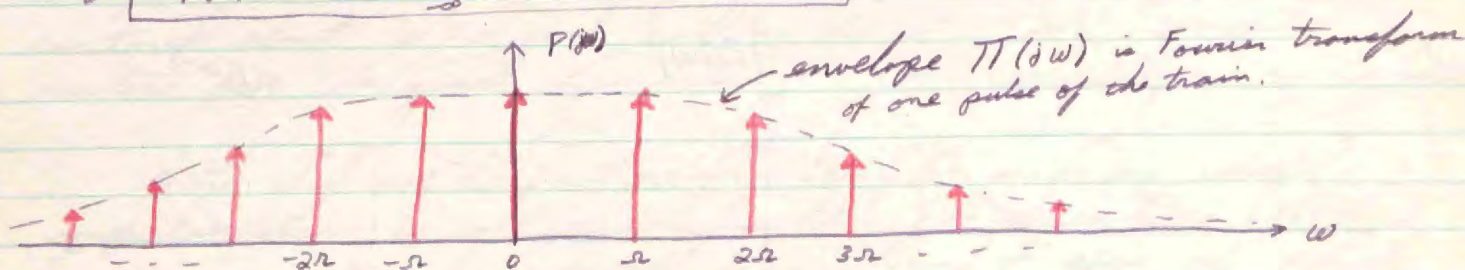 P(jω)
envelope Π(jω) is Fourier transform
of one pulse of the train.
- - - -2Ω -Ω 0 Ω 2Ω 3Ω - - - ω